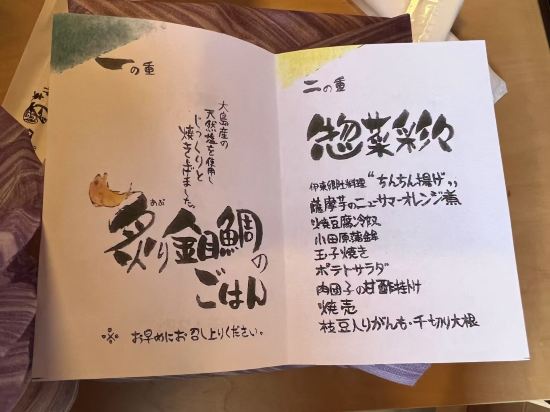 一の重
大島産の
天然塩を使用し
じっくりと
焼き上げました。
炙り金目鯛の
あぶ
ごはん
※ お早めにお召し上りください。
二の重
惣菜彩々
伊東郷土料理 “ちんちん揚げ”
薩摩芋のニューサマーオレンジ煮
焼豆腐冷奴
小田原蒲鉾
玉子焼き
ポテトサラダ
肉団子の甘酢掛け
焼売
枝豆入りがんも・千切り大根